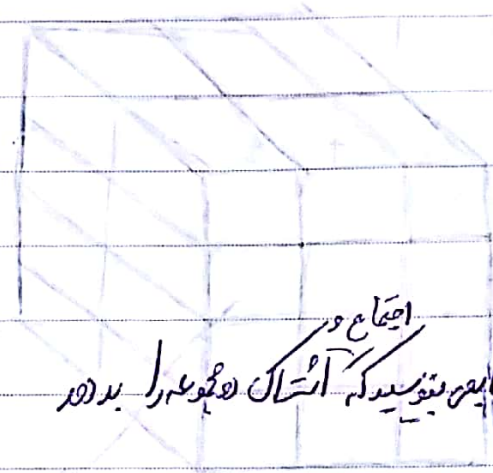 اجتماع و
بنویسید که اشتراک دو مجموعه را بدهد